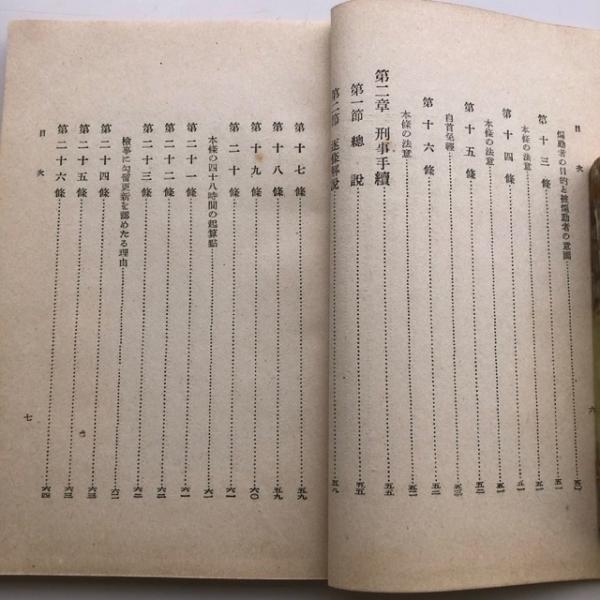 目次
煽動者の目的と被煽動者の意圖 五〇
第十三條 五一
本條の法意 五一
第十四條 五一
本條の法意 五二
第十五條 五二
自首免輕 五三
第十六條 五二
本條の法意 五二
第二章 刑事手續
第一節 總說 五五
第二節 逐條解說 五八
六
第十七條 五九
第十八條 五九
第十九條 六〇
第二十條 六一
本條の四十八時間の起算點 六一
第二十一條 六一
第二十二條 六二
第二十三條 六二
檢事に勾留更新を認めたる理由 六二
第二十四條 六三
第二十五條 六三
第二十六條 六四
目次
七